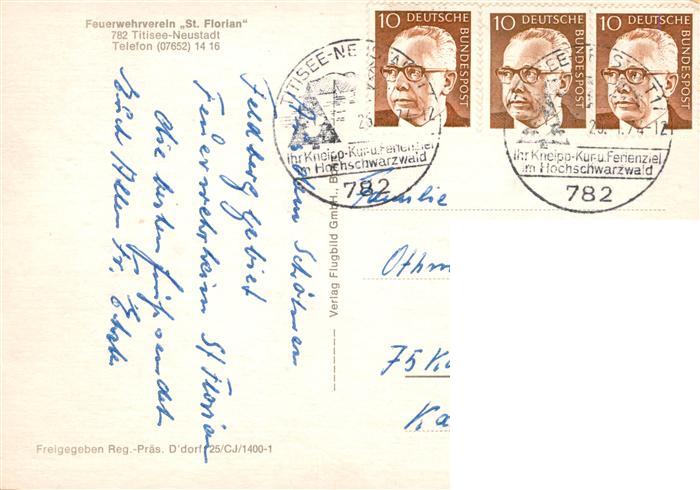 Feuerwehrverein „St. Florian"
782 Titisee-Neustadt
Telefon (07652) 14 16
Aus dem Schönen
Feldberggebiet
Feuerwehrheim St Florian
die besten Grüße sendet
Euch Allen Fr.
Freigegeben Reg.-Präs. D'dorf 25/CJ/1400-1
Verlag Flugbild GmbH.,
10 DEUTSCHE BUNDESPOST
10 DEUTSCHE BUNDESPOST
10 DEUTSCHE BUNDESPOST
TITISEE-NEUSTADT
Ihr Kneipp-Kur-u.Ferienziel
im Hochschwarzwald
782
74-12
Ihr Kneipp-Kur-u.Ferienziel
im Hochschwarzwald
782
Familie
Othm
75 Ka
Ka